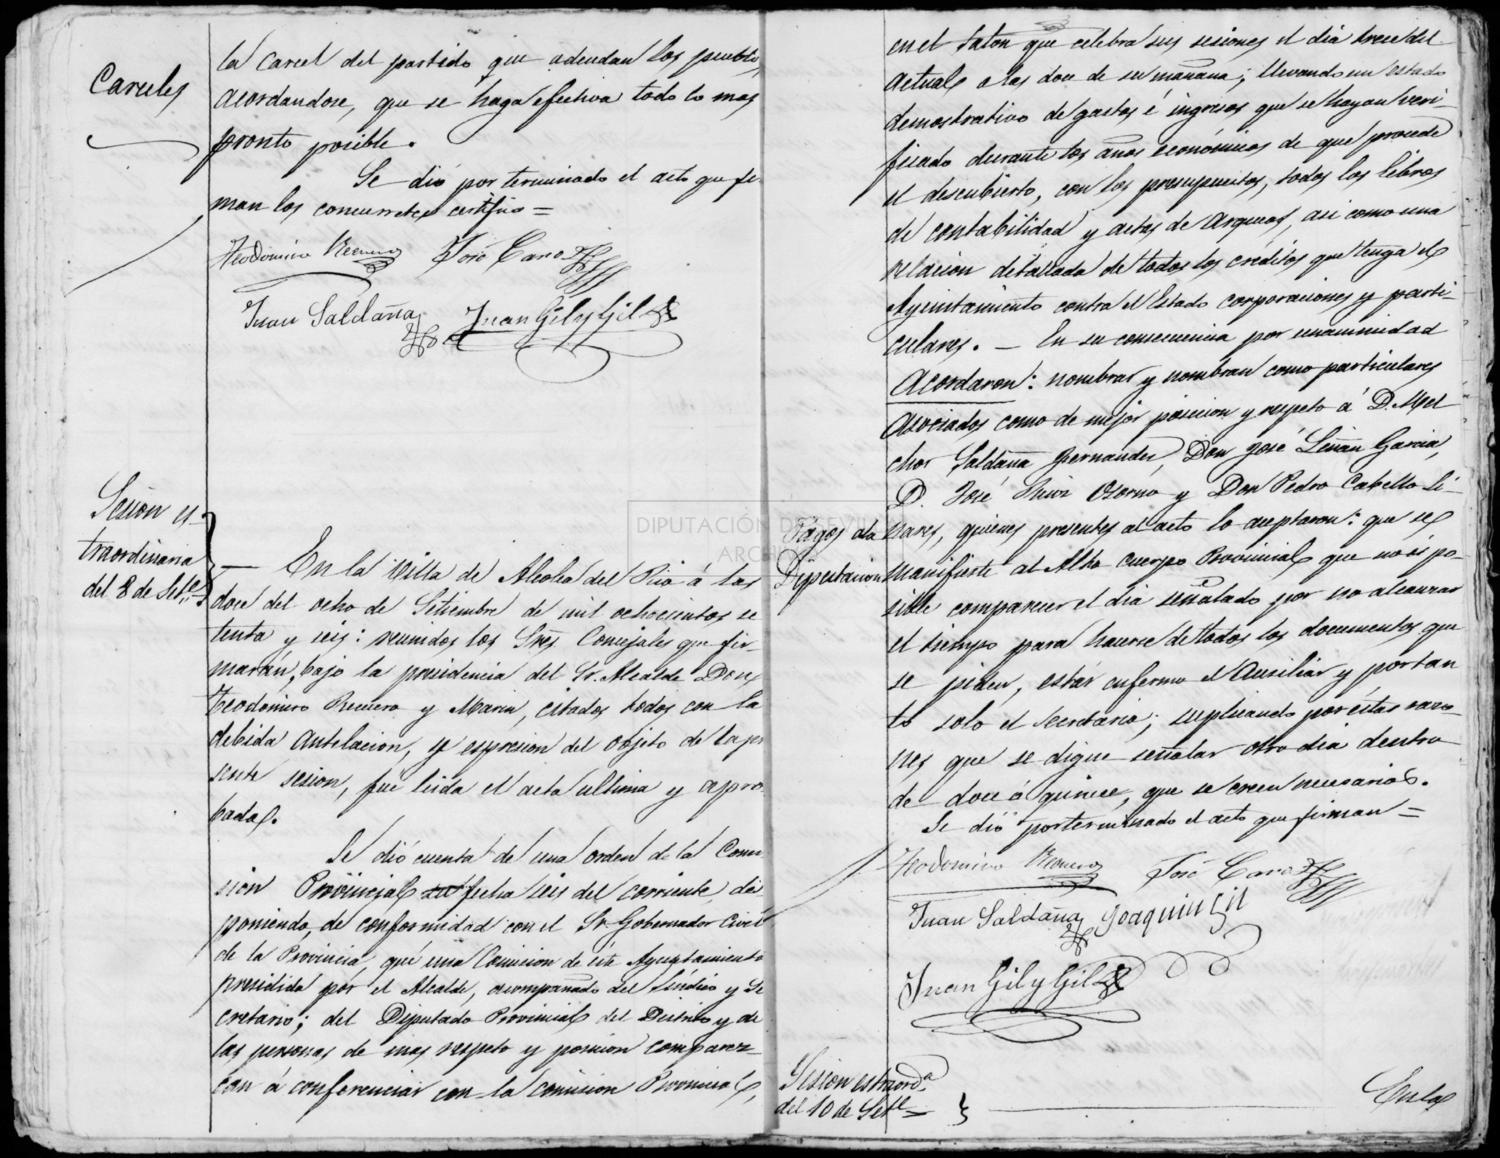 Carceles
la Carcel del partido que adeudan los pueblos,
acordandose, que se haga efectiva todo lo mas
pronto posible.
Se dió por terminado el acto que fir
man los concurretes certifico =
Teodomiro Recuero José Caro
Juan Saldaña Juan Gil y Gil
Sesion es-
traordinaria
del 8 de Sete.
En la Villa de Alcolea del Rio á las
doce del ocho de Setiembre de mil ochocientos se
tenta y seis: reunidos los Sres. Concejales que fir-
marán, bajo la presidencia del Sr. Alcalde Don
Teodomiro Recuero y Marin, citados todos con la
debida antelacion, y espresion del objeto de la pre
sente sesion, fue leida el acta ultima y apro
bada.
Se dió cuenta de una orden de la Comi
sion Provincial fecha seis del corriente, dis
poniendo, de conformidad con el Sr. Gobernador Civil
de la Provincia, que una Comision de este Ayuntamiento
presidida por el Alcalde, acompañado del Sindico y Se
cretario; del Diputado Provincial del Distrito y de
las personas de mas respeto y posicion comparez-
can á conferenciar con la comision Provincial,
en el Salon que celebra sus sesiones el dia trece del
actual a las doce de su mañana; llevando un estado
demostrativo de gastos é ingresos que se hayan veri-
ficado durante los años económicos de que procede
el descubierto, con los presupuestos, todos los libros
de contabilidad y actas de arqueos, asi como una
relacion detallada de todos los créditos que tenga el
Ayuntamiento contra el Estado corporaciones y parti-
culares. - En su consecuencia por unanimidad
Acordaron: nombrar y nombran como particulares
asociados como de mejor posicion y respeto á D. Mel
chor Saldaña Fernandez, Don José Liñan Garcia,
D. José Osorno y Don Pedro Cabello Li-
Pagos a la
Diputacion
nares, quienes presentes al acto lo aceptaron: que se
manifieste al Alto Cuerpo Provincial que no es po-
sible comparecer el dia señalado por no alcanzar
el tiempo para hacerse de todos los documentos que
se piden, estár enfermo el Ausiliar y por tan
to solo el Secretario; suplicando por éstas razo-
nes que se digne señalar otro dia dentro
de doce á quince, que se creen necesarios.
Se dió por terminado el acto que firman =
Teodomiro Recuero José Caro
Juan Saldaña Joaquin Gil
Juan Gil y Gil
Sesion estraorda.
del 10 de Sete.
En la
DIPUTACIÓN DE SEVILLA
ARCHIVO